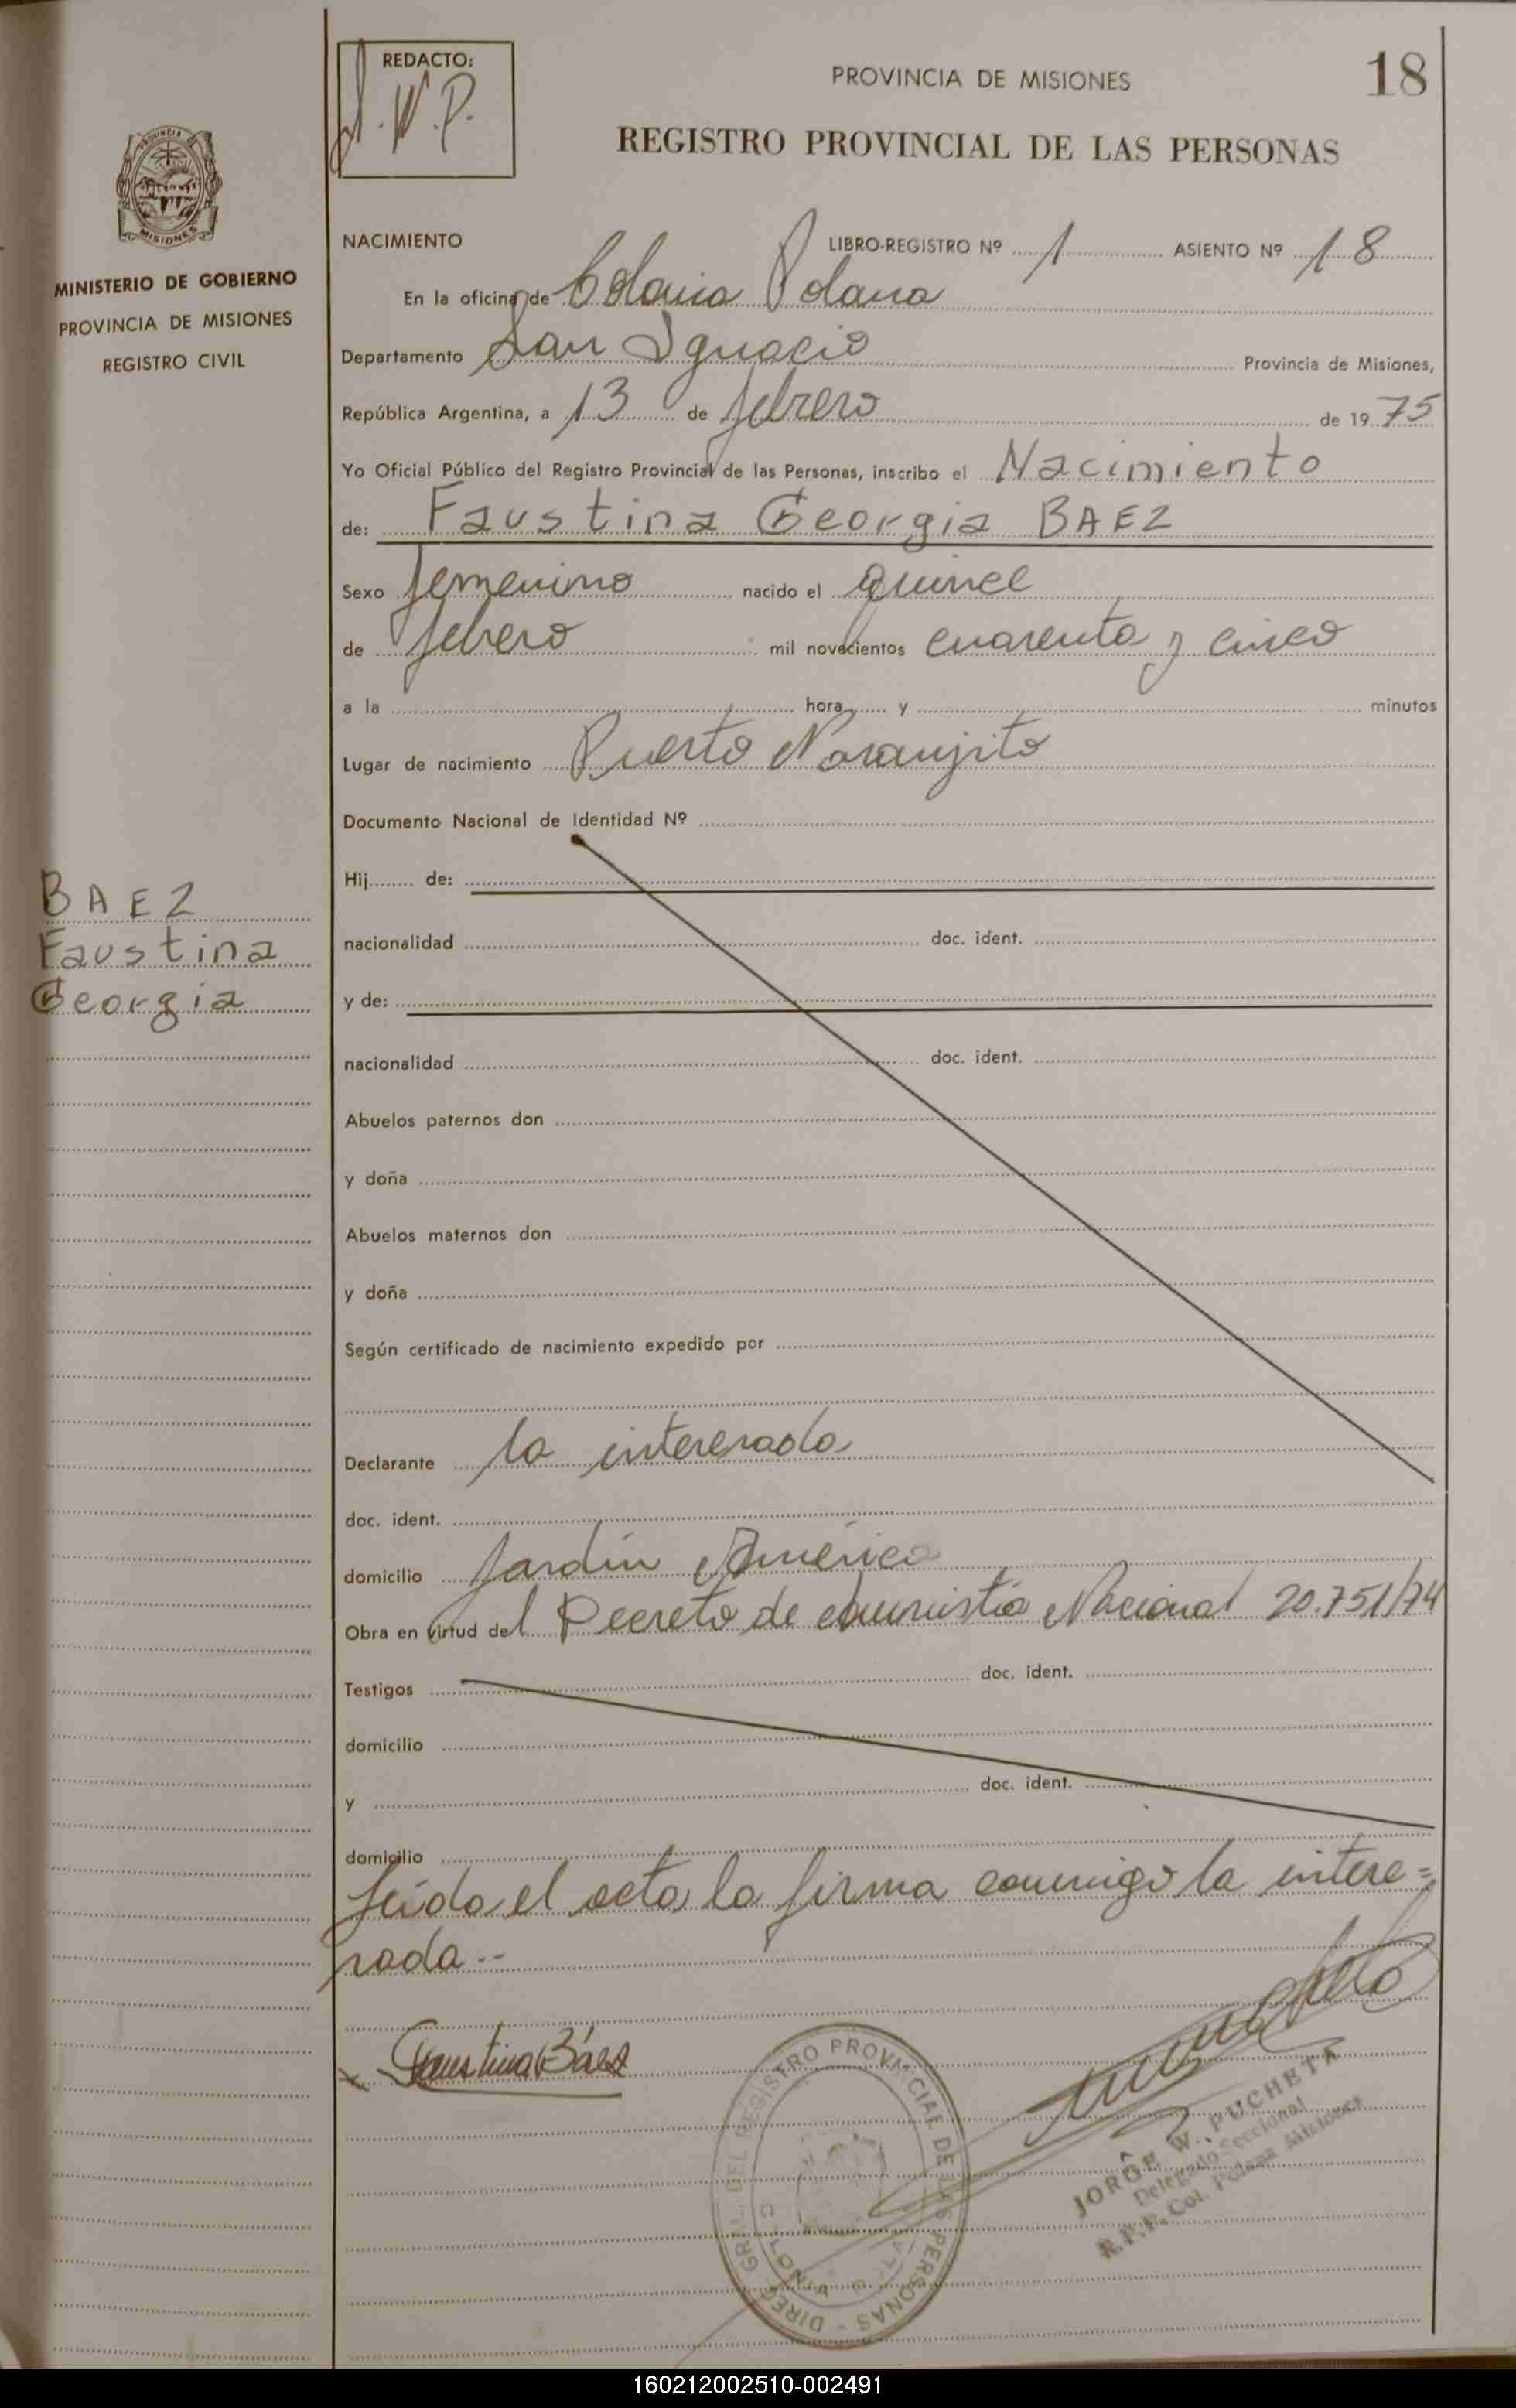 REDACTO:
J. W. P.
PROVINCIA DE MISIONES
18
REGISTRO PROVINCIAL DE LAS PERSONAS
PROVINCIA
MISIONES
MINISTERIO DE GOBIERNO
PROVINCIA DE MISIONES
REGISTRO CIVIL
NACIMIENTO LIBRO-REGISTRO Nº 1 ASIENTO Nº 18
En la oficina de Colonia Polana
Departamento San Ignacio Provincia de Misiones,
República Argentina, a 13 de febrero de 1975
Yo Oficial Público del Registro Provincial de las Personas, inscribo el Nacimiento
de: Faustina Georgia BAEZ
Sexo femenino nacido el quince
de febrero mil novecientos cuarenta y cinco
a la hora y minutos
Lugar de nacimiento Puerto Naranjito
Documento Nacional de Identidad Nº
Hij de:
BAEZ
Faustina
Georgia
nacionalidad doc. ident.
y de:
nacionalidad doc. ident.
Abuelos paternos don
y doña
Abuelos maternos don
y doña
Según certificado de nacimiento expedido por
Declarante la interesada
doc. ident.
domicilio Jardín América
Obra en virtud del Decreto de Amnistía Nacional 20.751/74
Testigos doc. ident.
domicilio
y doc. ident.
domicilio
Leída el acta la firma conmigo la intere=
sada.--
x Faustina Báez
DIREC. GRAL. DEL REGISTRO PROVINCIAL DE LAS PERSONAS
COLONIA POLANA
JORGE W. PUCHETA
Delegado Seccional
R.P.P. Col. Polana Misiones
160212002510-002491